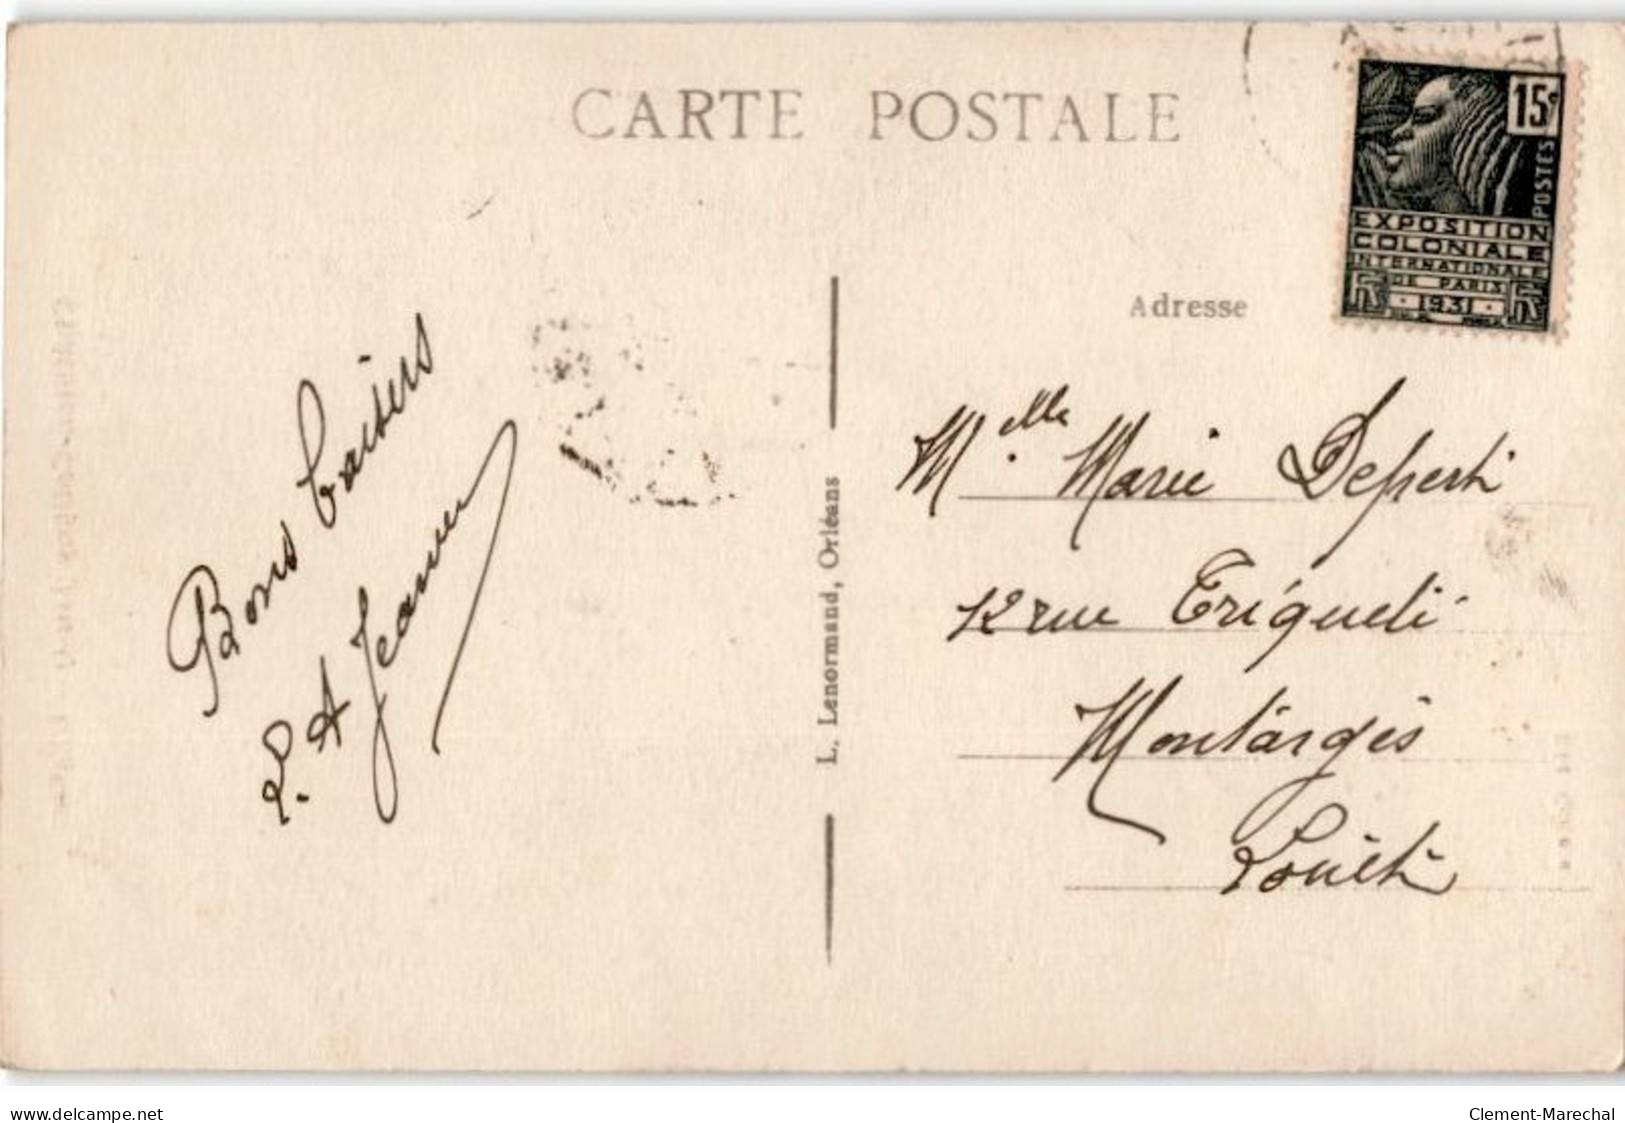 CARTE POSTALE
15c
POSTES
EXPOSITION
COLONIALE
INTERNATIONALE
DE PARIS
1931
Adresse
Bons baisers
L. A Jeanne
L. Lenormand, Orléans
Melle Marie
12 rue Triqueti
Montargis
Loiret
delcampe.net
Clement-Marechal